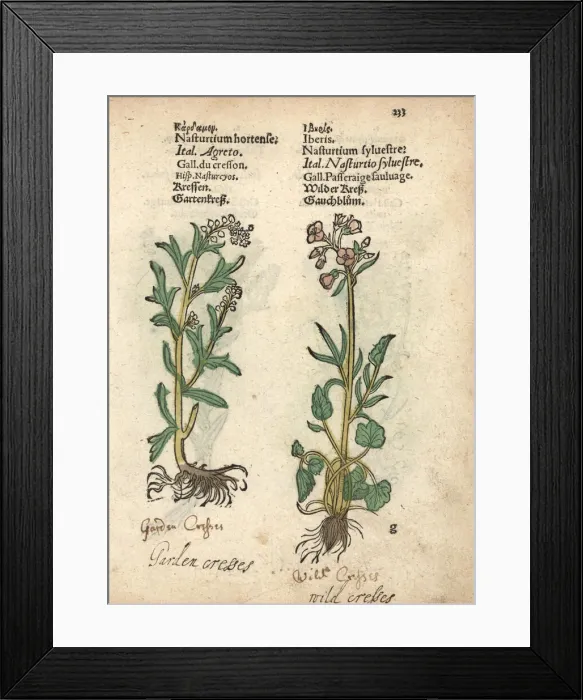 233
Κάρδαμον.
Nasturtium hortense:
Ital. Agreto.
Gall. du cresson.
Hisp. Nastureyos.
Kressen.
Gartenkreß.
Iberis.
Nasturtium sylvestre:
Ital. Nasturtio sylvestre.
Gall. Passeraige sauluage.
Wilder Kreß.
Gauchblům.
g
Garden Cresses
Garden cresses
Wild Cresses
wild cresses